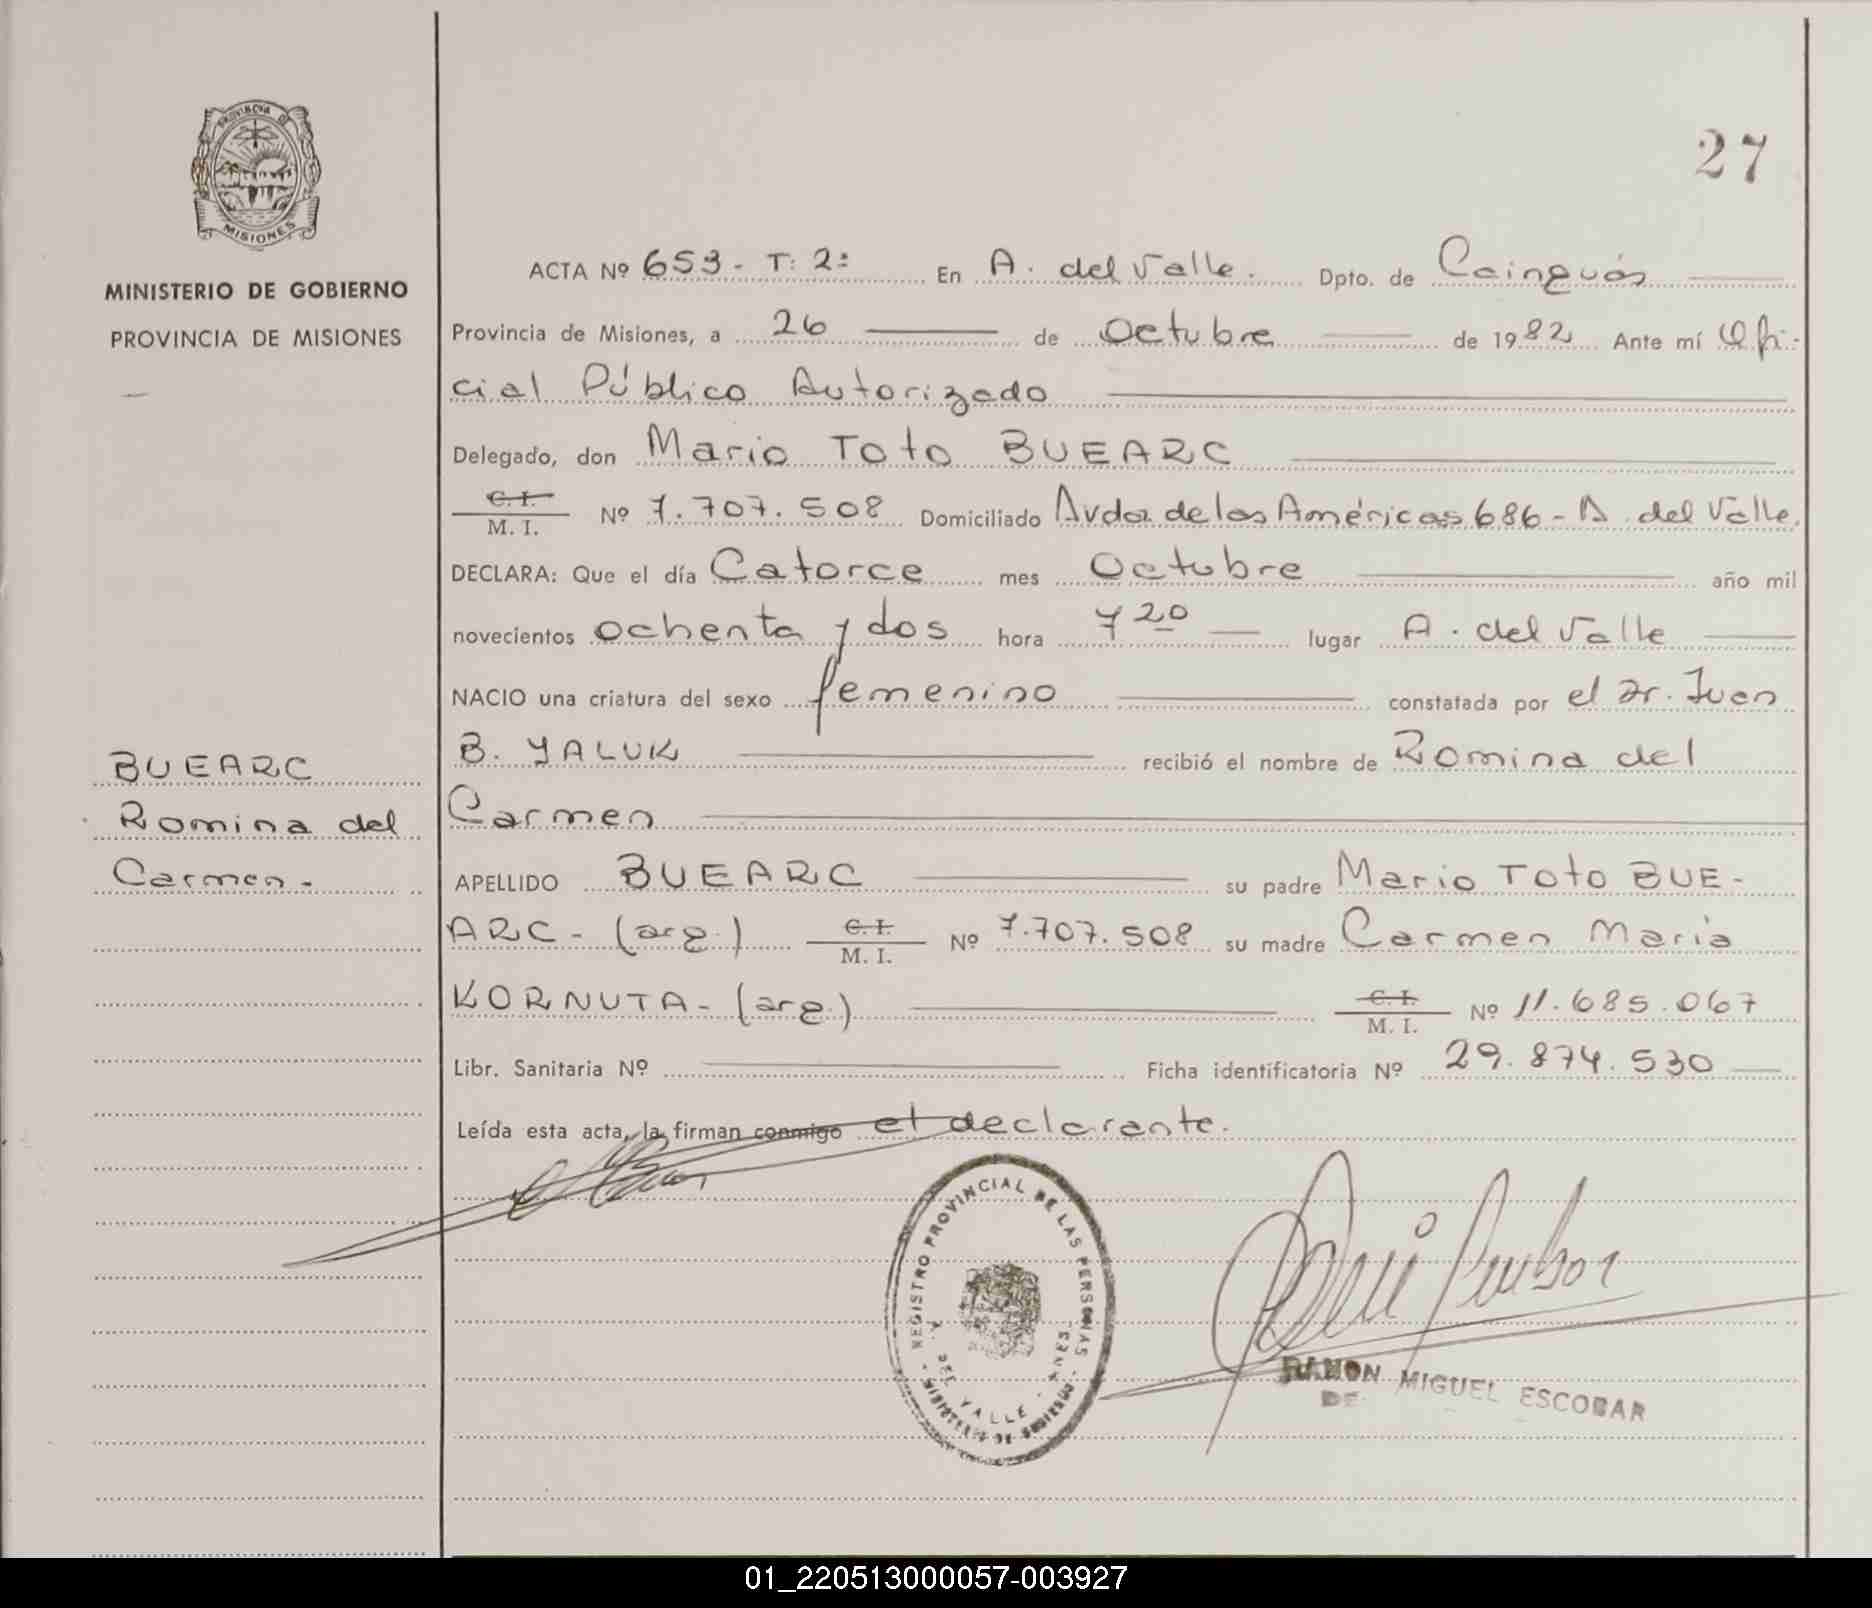 PROVINCIA DE
MISIONES
MINISTERIO DE GOBIERNO
PROVINCIA DE MISIONES
BUEARC
Romina del
Carmen.-
27
ACTA Nº 653 - T: 2: En A. del Valle. Dpto. de Cainguás
Provincia de Misiones, a 26 de Octubre de 1982 Ante mí Ofi-
cial Público Autorizado
Delegado, don Mario Toto BUEARC
C. I.
M. I. Nº 7.707.508 Domiciliado Avda. de las Américas 686 - A. del Valle.
DECLARA: Que el día Catorce mes Octubre año mil
novecientos ochenta y dos hora 7 20 lugar A. del Valle
NACIO una criatura del sexo femenino constatada por el Dr. Juan
B. YALUK recibió el nombre de Romina del
Carmen
APELLIDO BUEARC su padre Mario Toto BUE-
ARC - (arg.) C. I.
M. I. Nº 7.707.508 su madre Carmen Maria
KORNUTA - (arg.) C. I.
M. I. Nº 11.685.067
Libr. Sanitaria Nº Ficha identificatoria Nº 29.874.530
Leída esta acta, la firman conmigo el declarante.
REGISTRO PROVINCIAL DE LAS PERSONAS
A. DEL VALLE - MNES.
MINISTERIO DE GOBIERNO
RAMON MIGUEL ESCOBAR
DE
01_220513000057-003927